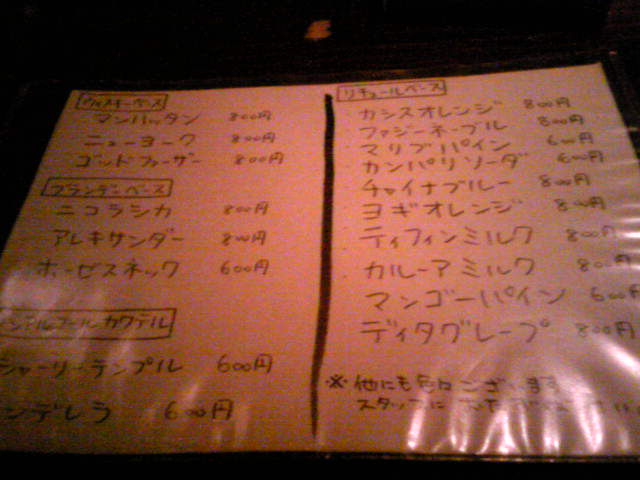 ウィスキーベース
マンハッタン 800円
ニューヨーク 800円
ゴッドファーザー 800円
ブランデーベース
ニコラシカ 800円
アレキサンダー 800円
ホーセズネック 600円
ンアルコールカクテル
シャーリーテンプル 600円
ンデレラ 600円
リキュールベース
カシスオレンジ 800円
ファジーネーブル 800円
マリブパイン 600円
カンパリソーダ 600円
チャイナブルー 800円
ヨギオレンジ 800円
ティフィンミルク 800円
カルーアミルク 800円
マンゴーパイン 600円
ディタグレープ 800円
※他にも色々ございます
スタッフに